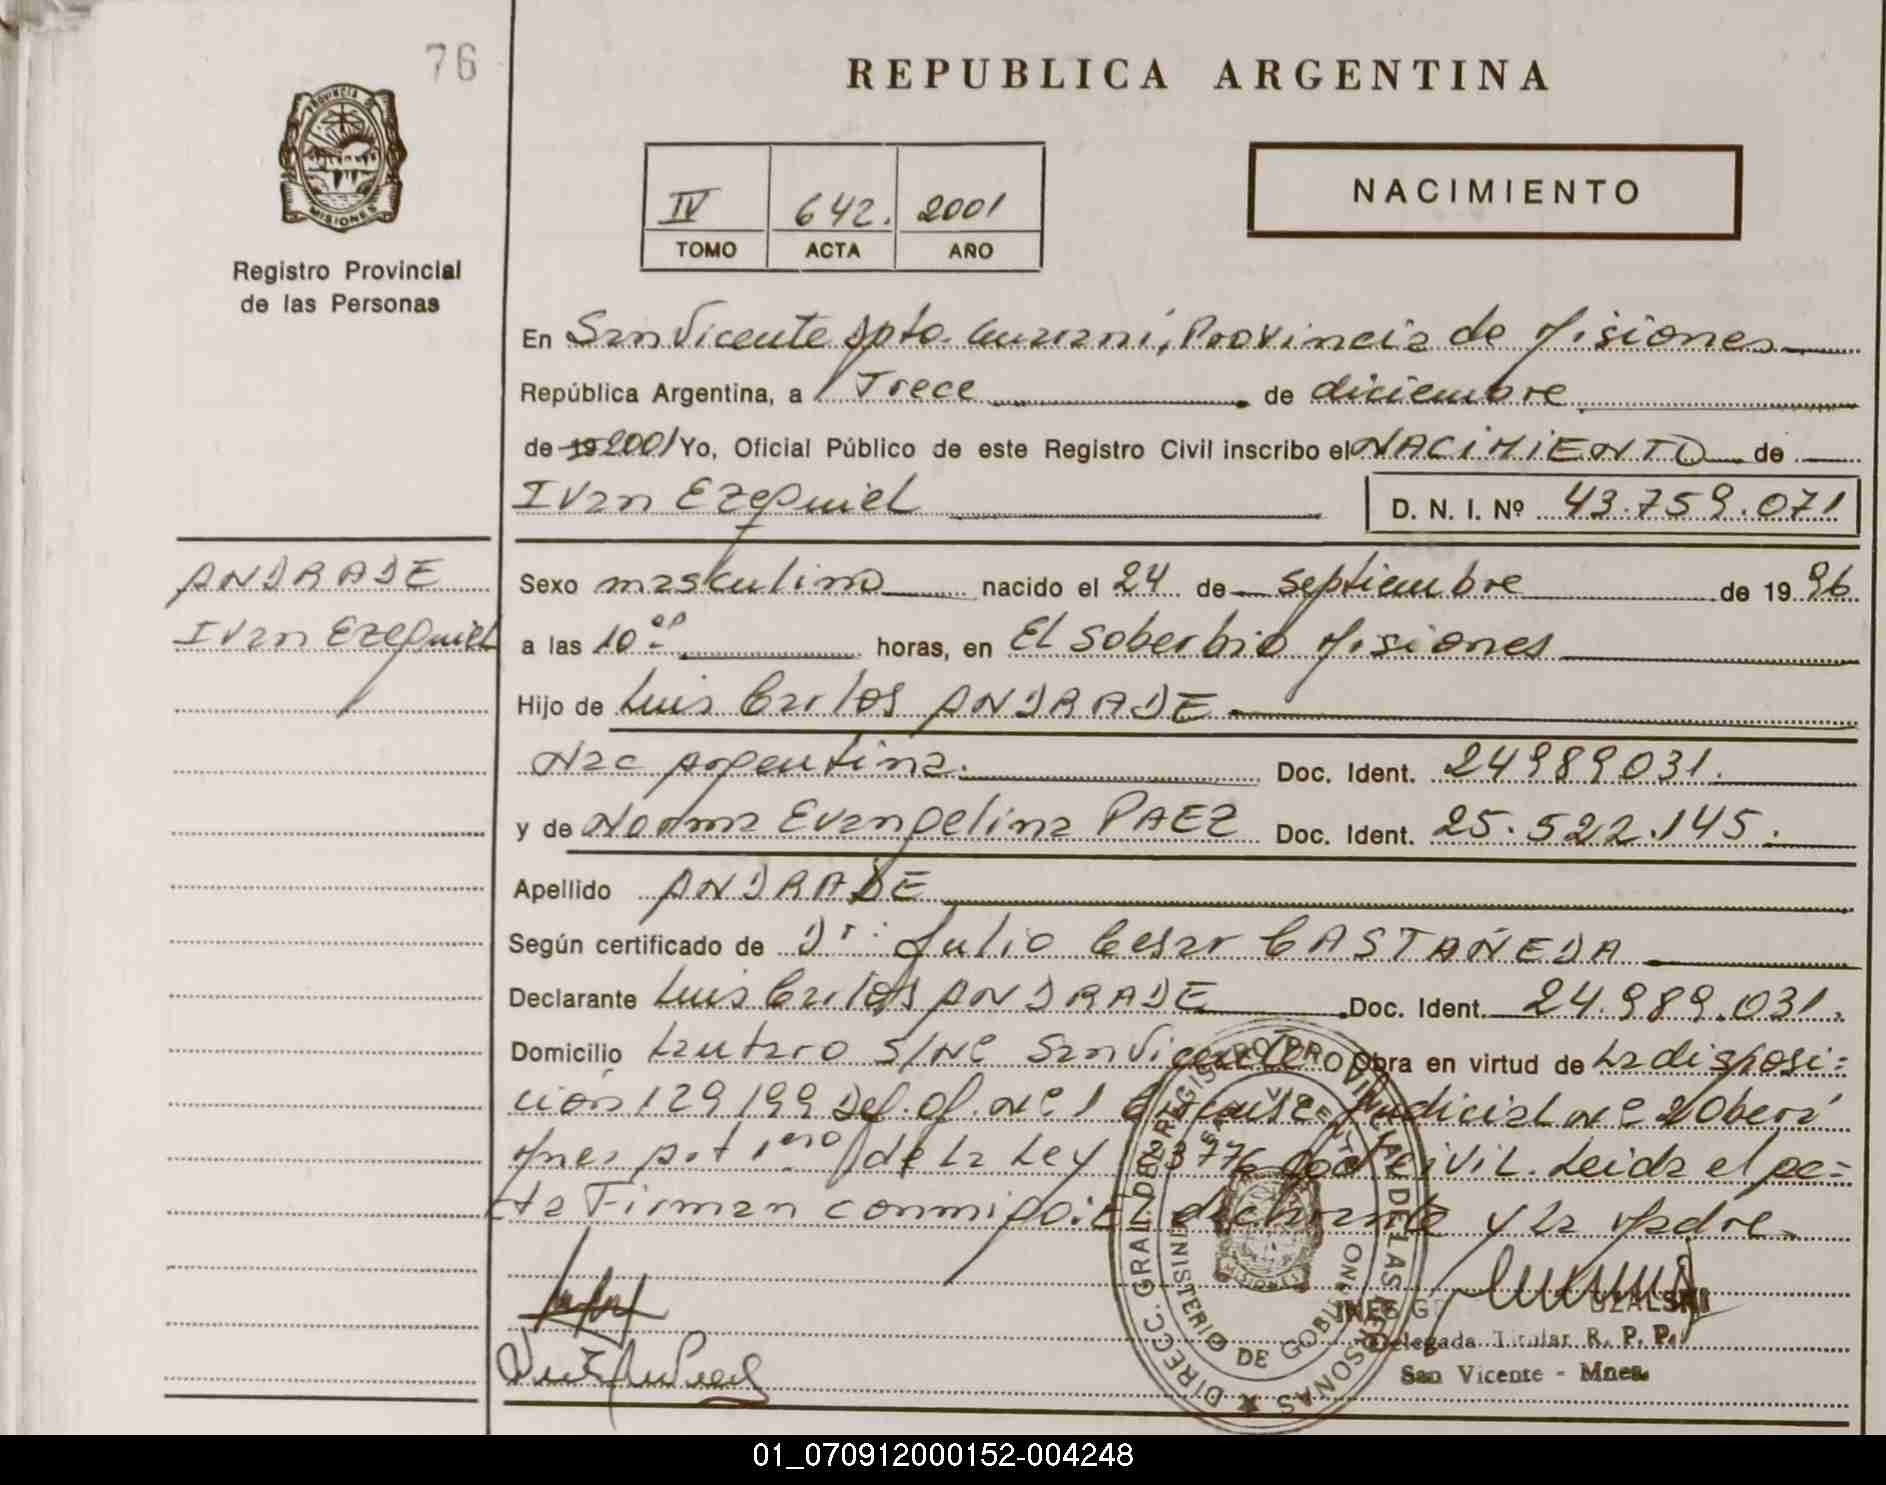 76
REPUBLICA ARGENTINA
PROVINCIA DE
MISIONES
Registro Provincial
de las Personas
IV 642. 2001
TOMO ACTA AÑO
NACIMIENTO
En San Vicente Dpto. Guaraní, Provincia de Misiones
República Argentina, a Trece de diciembre
de 19 2001 Yo, Oficial Público de este Registro Civil inscribo el NACIMIENTO de
Ivan Ezequiel D. N. I. Nº 43.759.071
ANDRADE
Ivan Ezequiel
Sexo masculino nacido el 24 de septiembre de 1996
a las 10 horas, en El Soberbio Misiones
Hijo de Luis Carlos ANDRADE
Nac Argentina. Doc. Ident. 24989031.
y de Norma Evangelina PAEZ Doc. Ident. 25.522.145.
Apellido ANDRADE
Según certificado de Dr. Julio Cesar CASTAÑEDA
Declarante Luis Carlos ANDRADE Doc. Ident. 24.989.031.
Domicilio Lautaro S/Nº San Vicente Obra en virtud de La disposi=
ción 129/99 Def. Of. Nº 1 Judicial Nº 2 Oberá
Mnes art 1ero de La Ley Civil. Leida el ac=
ta Firman conmigo: El declarante y La Madre.
DIRECC. GRAL. DEL REGISTRO PROVINCIAL DE LAS PERSONAS
SAN VICENTE
MINISTERIO DE GOBIERNO
MISIONES
INES G
Delegada Titular R. P. P.
San Vicente - Mnes.
01_070912000152-004248